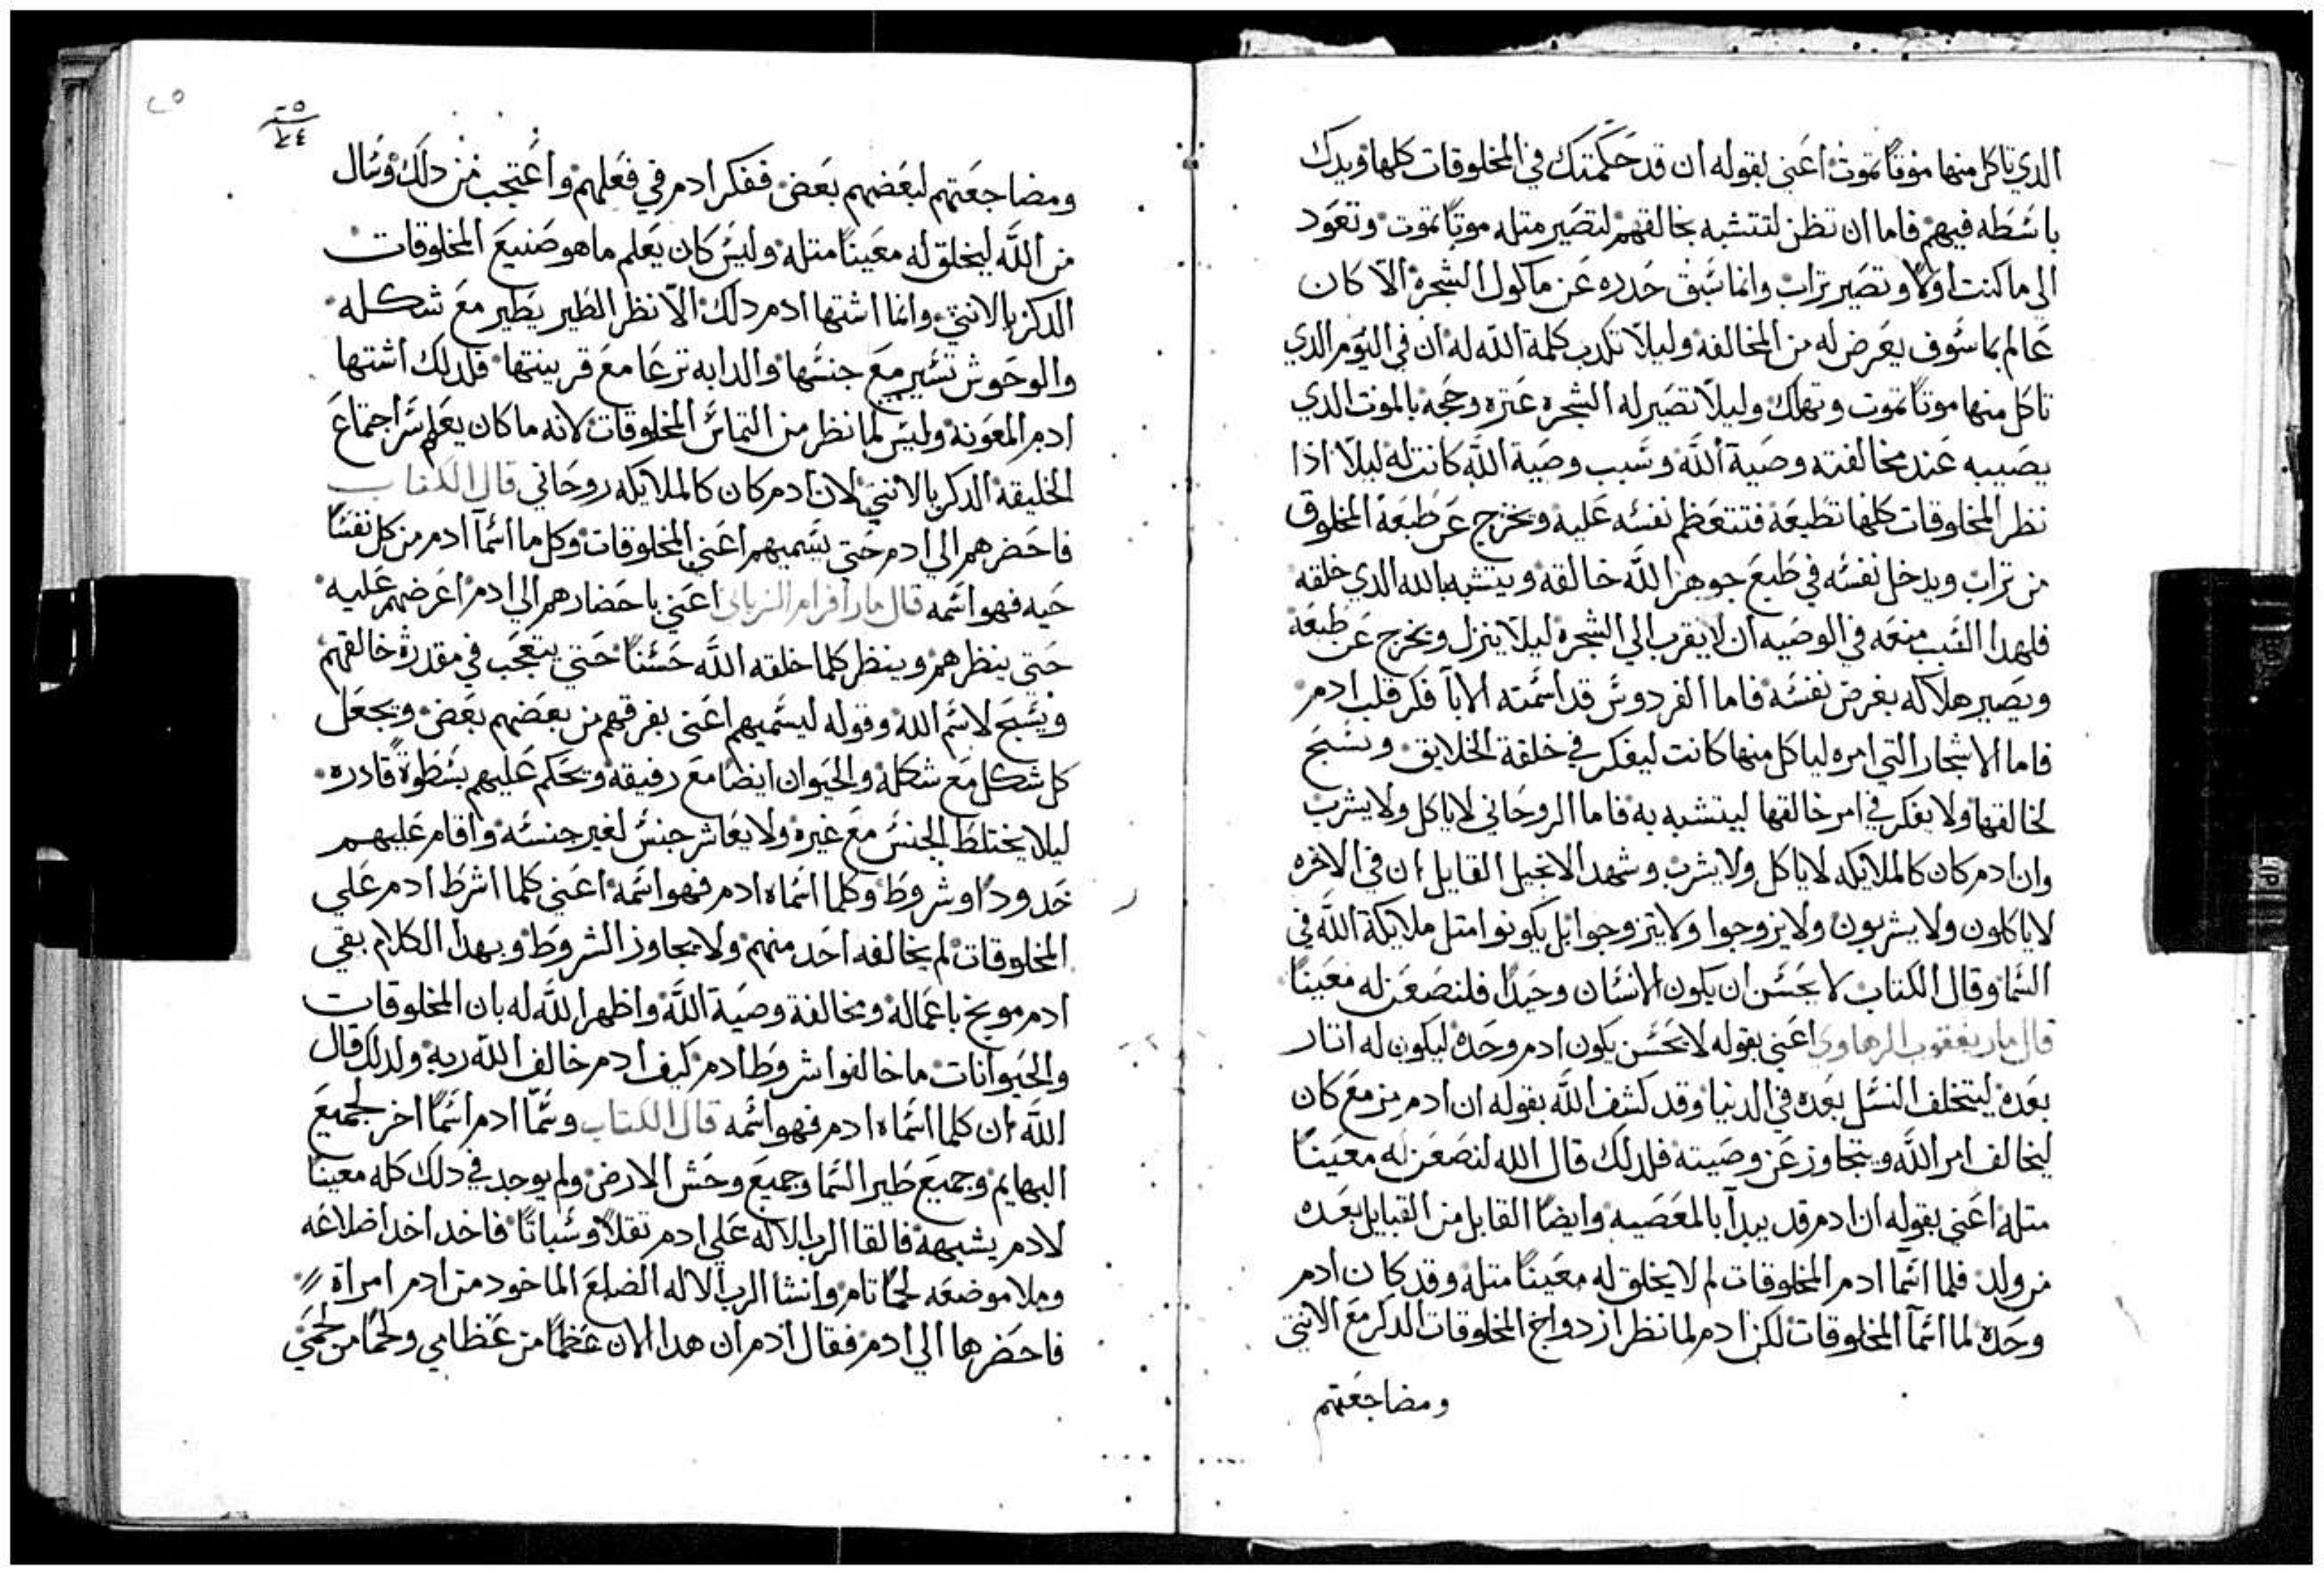 الدي تاكل منها موتاً تموت اعني بقوله ان قد حكمتك في المخلوقات كلها ويدك
باسطه فيهم فاما ان تظن لتتشبه بخالقهم لتصير متله موتاً تموت وتعود
الى ما كنت اولاً وتصير تراب وانما سبق حدره عن ماكول الشجرة الا كان
عالم بما سوف يعرض له من المخالفه وليلا تكدب كلمة الله له ان في اليوم الدي
تاكل منها موتاً تموت وتهلك وليلا تصير له الشجره عتره وحجه بالموت الدي
يصيبه عند مخالفته وصية الله وسبب وصية الله كانت له ليلا ادا
نظر المخلوقات كلها تطيعه فتتعظم نفسه عليه ويخرج عن طبعة المخلوق
من تراب ويدخل نفسه في طبع جوهر الله خالقه ويتشبه بالله الدي خلقه
فلهدا السبب منعه في الوصيه ان لا يقرب الي الشجره ليلا ينزل ويخرج عن طبعه
ويصير هلاكه بغرض نفسه فاما الفردوس قد اسمته الابآ فكر قلب ادم
فاما الاشجار التي امره لياكل منها كانت ليفكر في خلقة الخلايق ويسبح
لخالقها ولا يفكر في امر خالقها ليتشبه به فاما الروحاني لا ياكل ولا يشرب
وان ادم كان كالملايكه لا ياكل ولا يشرب وشهد الانجيل القايل ان في الاخره
لا ياكلون ولا يشربون ولا يزوجوا ولا يتزوجوا بل يكونوا متل ملايكة الله في
السما وقال الكتاب لا يحسن ان يكون الانسان وحيداً فلنصنعن له معيناً
قال مار يعقوب الرهاوي اعني بقوله لا يحسن يكون ادم وحده ليكون له اتار
بعده ليتخلف النسل بعده في الدنيا وقد كشف الله بقوله ان ادم مزمع كان
ليخالف امر الله ويتجاوز عن وصيته فلدلك قال الله لنصنعن له معيناً
متله اعني بقوله ان ادم قد يبدآ بالمعصيه وايضاً القابل من القبايل بعده
من ولد فلما اسما ادم المخلوقات لم لا يخلق له معيناً متله وقد كان ادم
وحده لما اسمآ المخلوقات لكن ادم لما نظر ازدواج المخلوقات الدكر مع الانتي
ومضاجعتهم
٢٥
ومضاجعتهم لبعضهم بعض ففكر ادم في فعلهم واعتجب من دلك وسال
من الله ليخلق له معيناً متله وليس كان يعلم ما هو صنيع المخلوقات
الدكر بالانتي وانما اشتها ادم دلك الا نظر الطير يطير مع شكله
والوحوش تسير مع جنسها والدابه ترعا مع قرينتها فلدلك اشتها
ادم المعونه وليس لما نظر من التماس المخلوقات لانه ما كان يعلم سر اجتماع
الخليقة الدكر بالانتي لان ادم كان كالملايكه روحاني قال الكتاب
فاحضرهم الي ادم حتى يسميهم اعني المخلوقات وكل ما اسمآ ادم من كل نفساً
حيه فهو اسمه قال مار افرام السرياني اعني باحضارهم الي ادم اعرضهم عليه
حتى ينظرهم وينظر كلما خلقه الله حسناً حتي يتعجب في مقدرة خالقهم
ويسبح لاسم الله وقوله ليسميهم اعني يفرقهم من بعضهم بعض ويجعل
كل شكل مع شكله والحيوان ايضاً مع رفيقه ويحكم عليهم بسطوةً قادره
ليلا يختلط الجنس مع غيره ولا يعاشر جنس لغير جنسه واقام عليهم
حدوداً وشروط وكلما اسماه ادم فهو اسمه اعني كلما اشرط ادم علي
المخلوقات لم يخالفه احد منهم ولا يجاوز الشروط وبهدا الكلام بقي
ادم موبخ باعماله ومخالفة وصية الله واظهر الله له بان المخلوقات
والحيوانات ما خالفوا شروط ادم كيف ادم خالف الله ربه ولدلك قال
الله ان كلما اسماه ادم فهو اسمه قال الكتاب وسما ادم اسماً اخر لجميع
البهايم وجميع طير السما وجميع وحش الارض ولم يوجد في دلك كله معيناً
لادم يشبهه فالقا الرب الاله علي ادم تقلاً وسباتاً فاخد احدا ضلاعه
وملا موضعه لحماً تام وانشا الرب الاله الضلع الماخود من ادم امراة
فاحضرها الي ادم فقال ادم ان هدا الان عظماً من عظامي ولحماً من لحمي